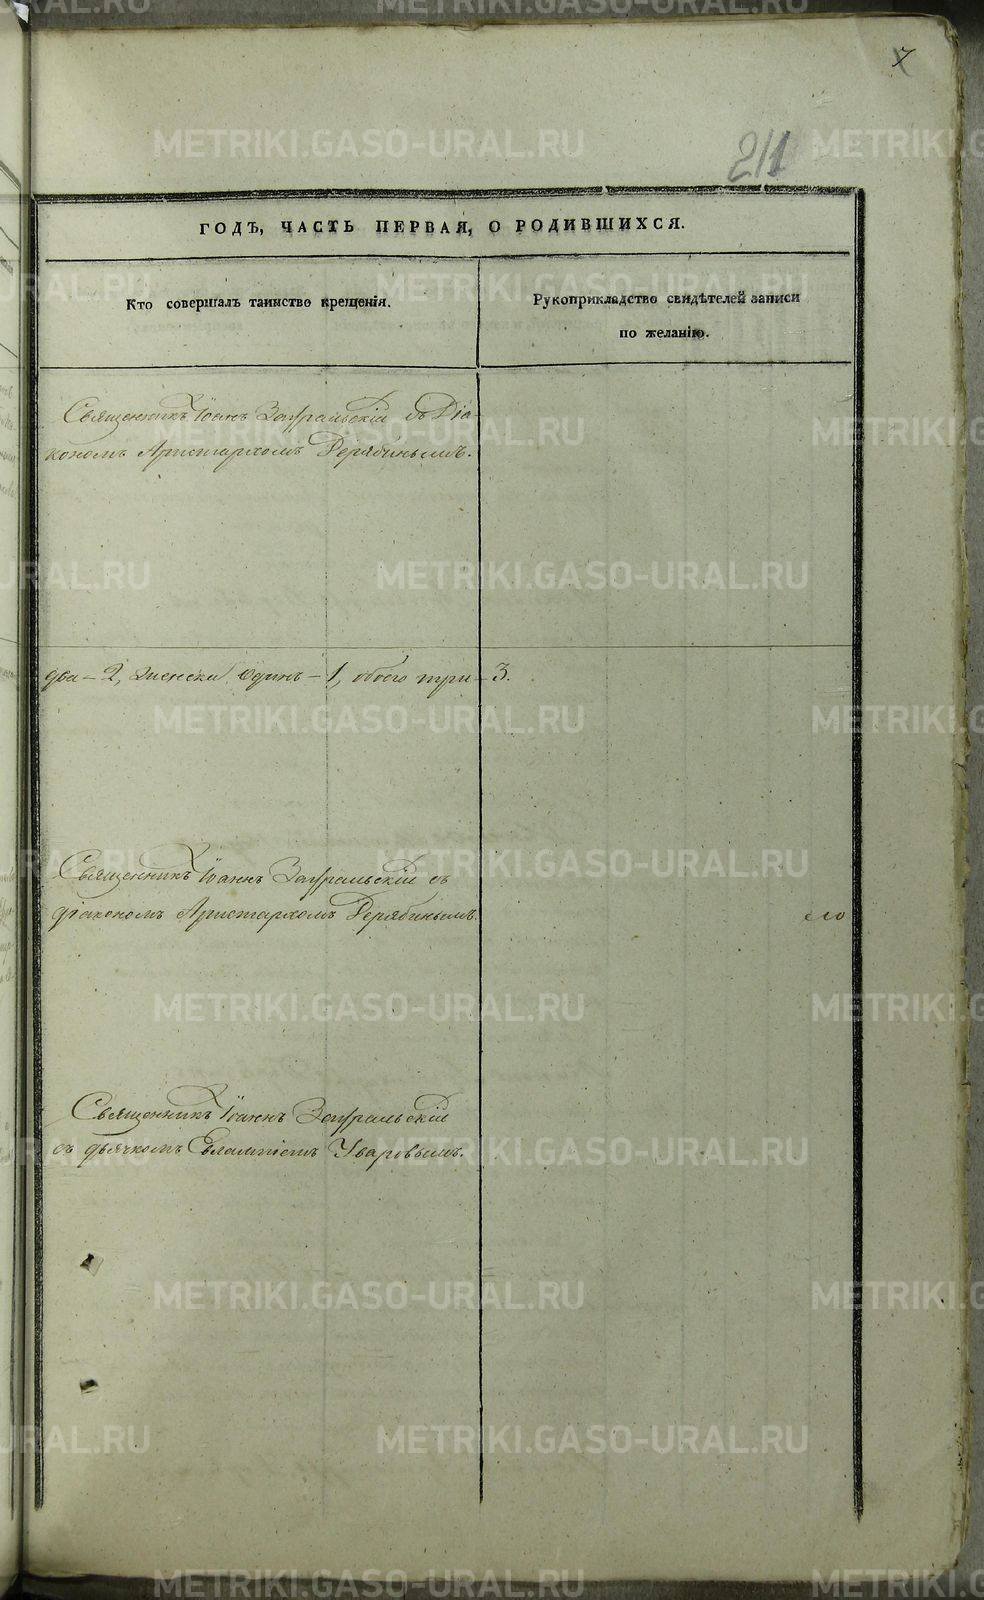 7
211
ГОДЪ, ЧАСТЬ ПЕРВАЯ, О РОДИВШИХСЯ.
Кто совершалъ таинство крещенія.
Рукоприкладство свидѣтелей записи
по желанію.
Священникъ Іоанъ Зауральскій съ Діа-
кономъ Аристархомъ Дерябинымъ.
два – 2, женска одинъ – 1, обоего три – 3.
Священникъ Іоаннъ Зауральскій съ
діакономъ Аристархомъ Дерябинымъ.
Священникъ Іоаннъ Зауральскій
съ дьячкомъ Евлампіемъ Уваровымъ.
METRIKI.GASO-URAL.RU